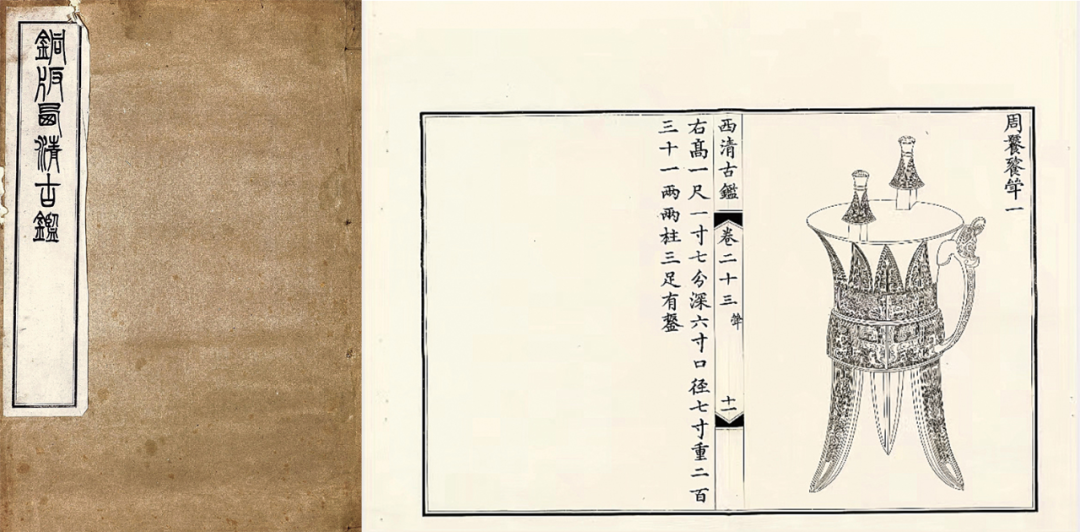 銅版西清古鑑
周饕餮斝一
西清古鑑
卷二十三 斝
十一
右髙一尺一寸七分深六寸口徑七寸重二百
三十一兩兩柱三足有鋬